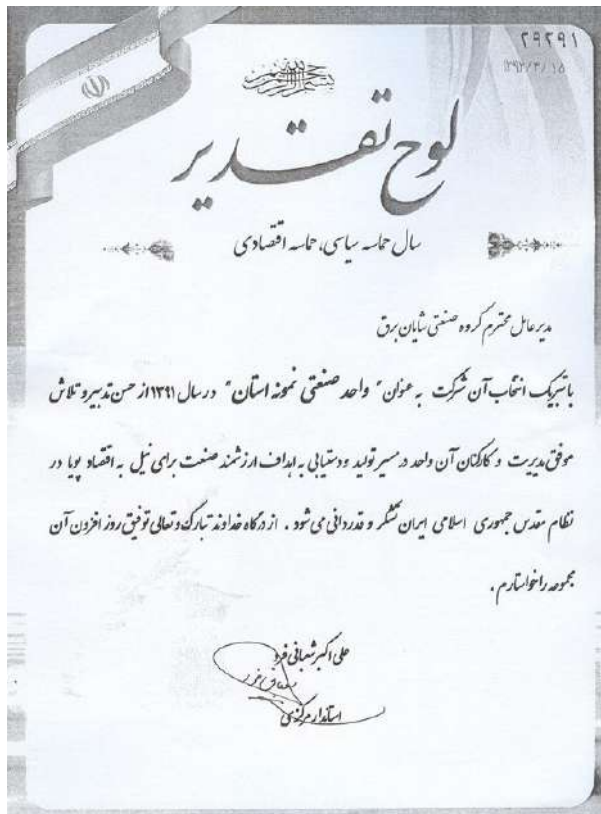 ۲۹۲۹۱
۱۳۹۲/۴/۱۵
بسم الله الرحمن الرحیم
لوح تقدیر
سال حماسه سیاسی، حماسه اقتصادی
مدیرعامل محترم گروه صنعتی شایان برق
با تبریک انتخاب آن شرکت به عنوان "واحد صنعتی نمونه استان" در سال ۱۳۹۱ از حسن تدبیر و تلاش
موفق مدیریت و کارکنان آن واحد در مسیر تولید و دستیابی به اهداف ارزشمند صنعت برای نیل به اقتصاد پویا در
نظام مقدس جمهوری اسلامی ایران تشکر و قدردانی می شود . از درگاه خداوند تبارک و تعالی توفیق روز افزون آن
مجموعه را خواستارم .
علی اکبر شعبانی فرد
استاندار مرکزی